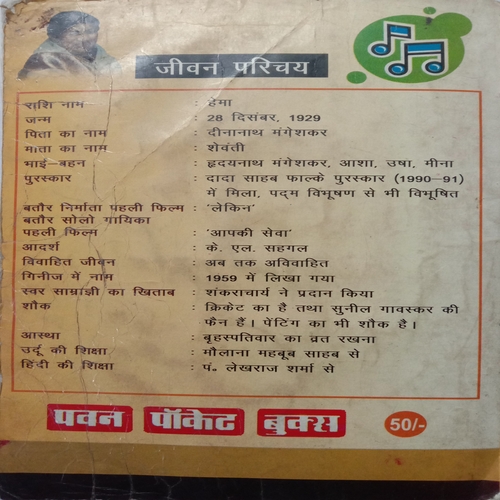 जीवन परिचय
राशि नाम : हेमा
जन्म : 28 दिसंबर, 1929
पिता का नाम : दीनानाथ मंगेशकर
माता का नाम : शेवंती
भाई-बहन : हृदयनाथ मंगेशकर, आशा, उषा, मीना
पुरस्कार : दादा साहब फाल्के पुरस्कार (1990-91)
में मिला, पद्म विभूषण से भी विभूषित
बतौर निर्माता पहली फिल्म : 'लेकिन'
बतौर सोलो गायिका
पहली फिल्म : 'आपकी सेवा'
आदर्श : के. एल. सहगल
विवाहित जीवन : अब तक अविवाहित
गिनीज में नाम : 1959 में लिखा गया
स्वर साम्राज्ञी का खिताब : शंकराचार्य ने प्रदान किया
शौक : क्रिकेट का है तथा सुनील गावस्कर की
फैन हैं। पेंटिंग का भी शौक है।
आस्था : बृहस्पतिवार का व्रत रखना
उर्दू की शिक्षा : मौलाना महबूब साहब से
हिंदी की शिक्षा : पं. लेखराज शर्मा से
पवन पॉकेट बुक्स 50/-